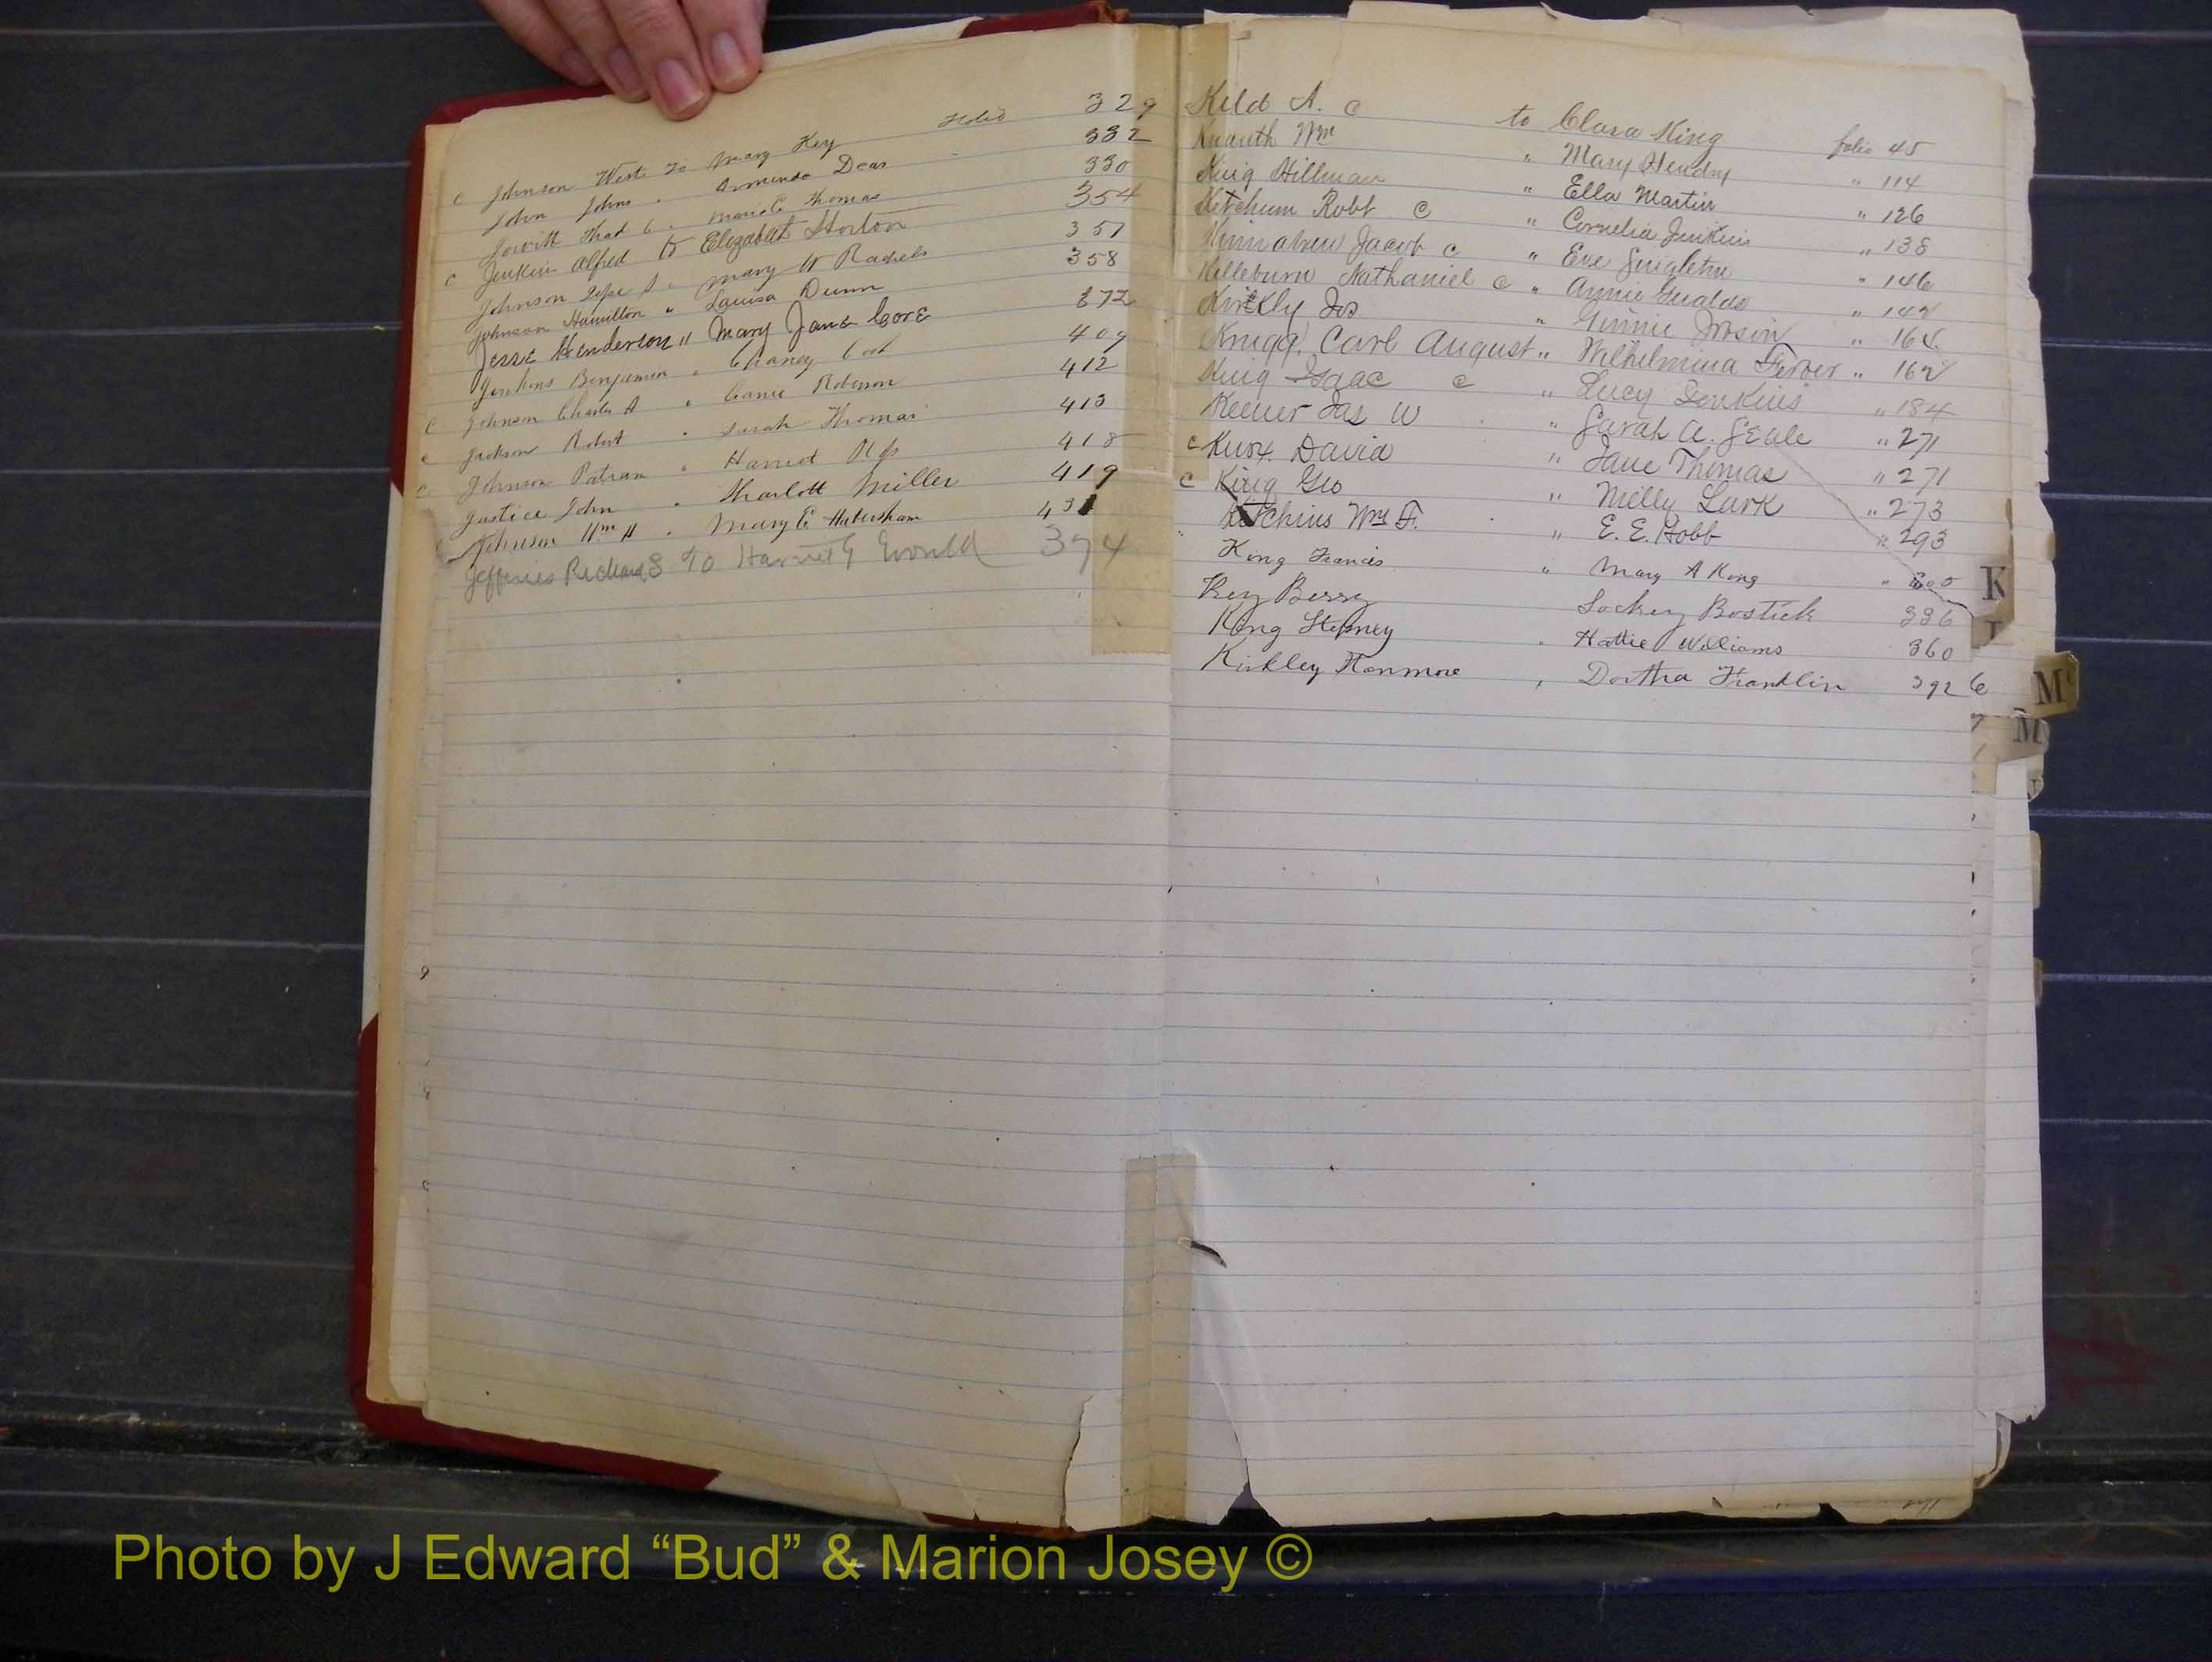 Folio 329
c Johnson West to Mary Key 332
John Johns " Armenda Deas 330
Jowitt Thad C. " Marie C Thomas 354
c Jenkins Alfred to Elizabeth Horton 357
Johnson " Mary W Rachels 358
Johnson Hamilton " Louisa Dunn
Jesse Henderson " Mary Jane Gore 372
Jenkins Benjamin " Chaney 409
c Johnson Charles A " Carrie Roberson 412
c Jackson Robert " Sarah Thomas 413
c Johnson Patram " Harriet 418
Justice John " Sharlott Miller 419
Johnson Wm H " Mary E Habersham 431
Jefferies Richard S to Harriet G Gould 374
Keld A. c to Clara King folio 45
Knauth Wm " Mary Hendry " 114
King Hillman " Ella Martin " 126
Ketchum Robt c " Cornelia Jenkins " 138
Jacob c " Eve Singleton " 146
Killeburn Nathaniel c " Annie " 142
Kirkly Jos " Ginnie " 164
Krugg. Carl August " Wilhelmina Ferver " 162
King Isaac c " Lucy Jenkins " 184
Keener Jas W " Sarah A. Seale " 271
c Kurx. David " Jane Thomas " 271
c King Geo " Milly Lark " 273
Kitchins Wm F. " E. E. Hobb " 293
King Francis " Mary A King " 300
Key Berry Lockey Bostick 336
King Stepney " Hattie Williams 360
Kirkley Hanmore " Dortha Franklin 392 c
K
L
Mc
M
Photo by J Edward “Bud” & Marion Josey ©